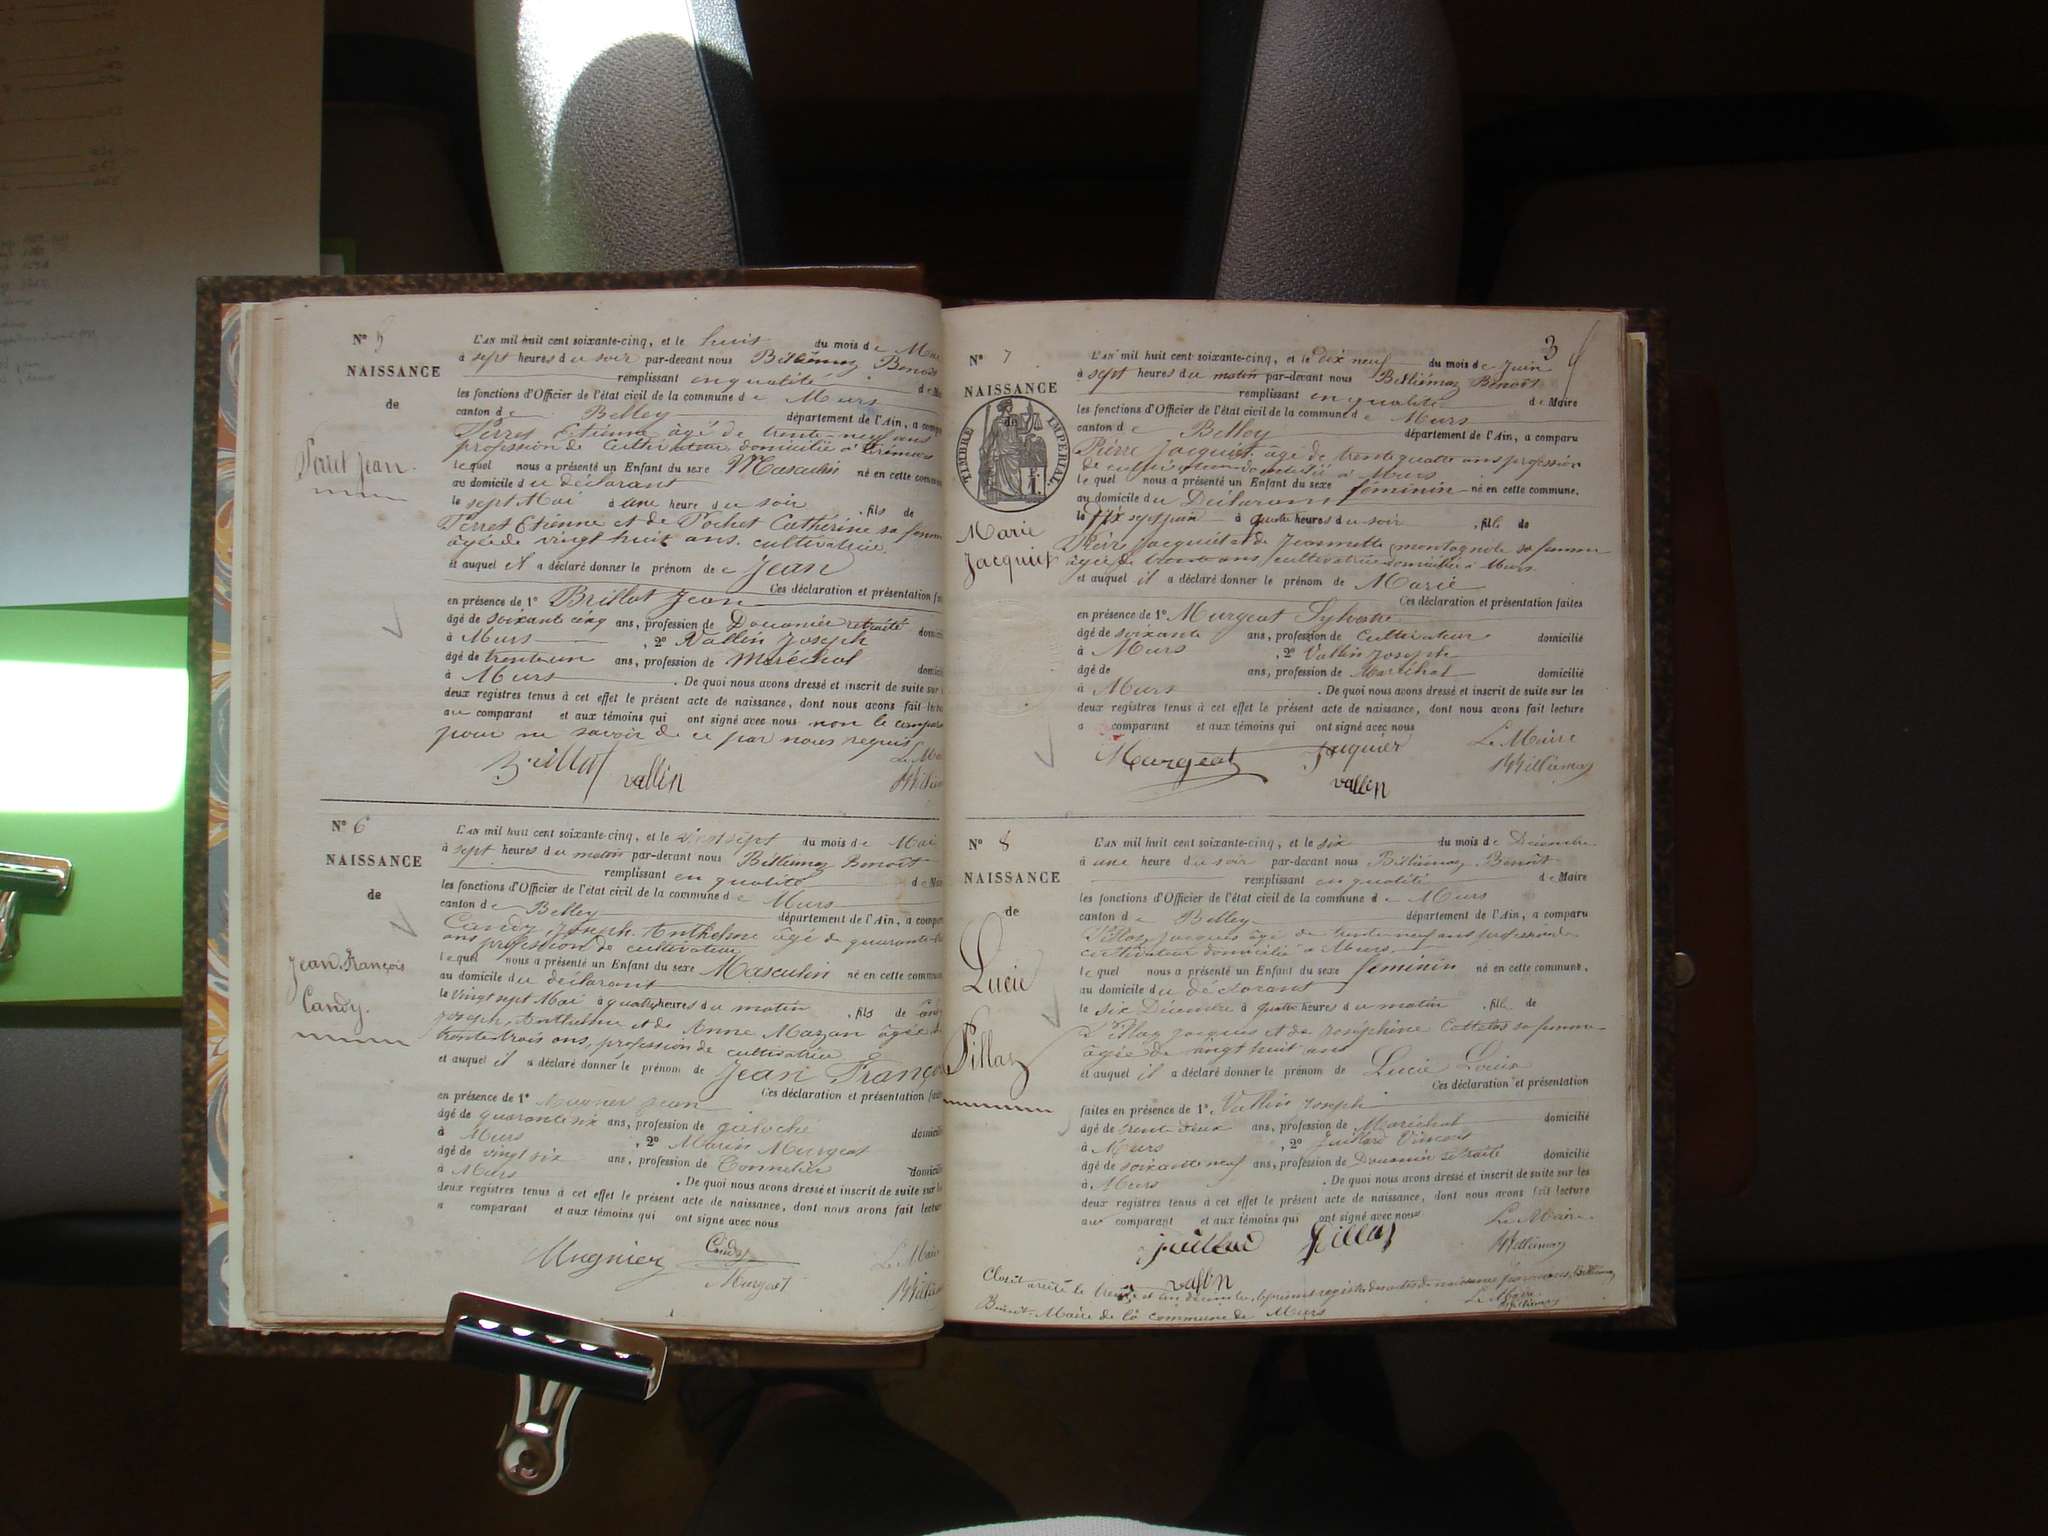 N° 5
NAISSANCE
de
Perret Jean.
L'AN mil huit cent soixante-cinq, et le huit du mois de Mai
à sept heures du soir par-devant nous Billiémaz Benoît
remplissant en qualité de
les fonctions d'Officier de l'état civil de la commune de Murs
canton de Belley département de l'Ain, a comparu
Perret Etienne âgé de trente-neuf ans
profession de Cultivateur domicilié à
lequel nous a présenté un Enfant du sexe Masculin né en cette commune
au domicile du déclarant
le sept Mai à une heure du soir , fils de
Perret Etienne et de Pochet Cathérine sa femme
âgée de vingt huit ans. cultivatrice
et auquel il a déclaré donner le prénom de Jean
Ces déclaration et présentation
en présence de 1° Brillat Jean
âgé de soixante cinq ans, profession de Douanier retraité
à Murs , 2° Vallin Joseph
âgé de trente un ans, profession de Maréchal
à Murs . De quoi nous avons dressé et inscrit de suite sur
deux registres tenus à cet effet le présent acte de naissance, dont nous avons fait lecture
au comparant et aux témoins qui ont signé avec nous non le comparant
pour ne savoir de ce par nous requis
Brillat vallin
N° 6
NAISSANCE
de
Jean-François
Candy.
L'AN mil huit cent soixante-cinq, et le vingt sept du mois de Mai
à sept heures du matin par-devant nous Billiémaz Benoît
remplissant en qualité de
les fonctions d'Officier de l'état civil de la commune de Murs
canton de Belley département de l'Ain, a comparu
Candy Joseph Anthelme âgé de quarante
ans profession de cultivateur
lequel nous a présenté un Enfant du sexe Masculin né en cette commune
au domicile du déclarant
le vingt sept Mai à quatre heures du matin , fils de
Joseph Anthelme et de Anne Mazan âgée de
trente trois ans, profession de cultivatrice
et auquel il a déclaré donner le prénom de Jean François
Ces déclaration et présentation
en présence de 1° Mugnier Jean
âgé de quarante six ans, profession de
à Murs , 2° Marin Murgeat
âgé de vingt six ans, profession de Tonnelier domicilié
à Murs . De quoi nous avons dressé et inscrit de suite sur
deux registres tenus à cet effet le présent acte de naissance, dont nous avons fait lecture
a comparant et aux témoins qui ont signé avec nous
Mugnier Candy
Murgeat
3
N° 7
NAISSANCE
de
TIMBRE IMPERIAL
Marie
Jacquier
L'AN mil huit cent soixante-cinq, et le dix neuf du mois de Juin
à sept heures du matin par-devant nous Billiémaz Benoît
remplissant en qualité de Maire
les fonctions d'Officier de l'état civil de la commune de Murs
canton de Belley département de l'Ain, a comparu
Pierre Jacquier âgé de trente quatre ans profession
de cultivateur domicilié à Murs
lequel nous a présenté un Enfant du sexe féminin né en cette commune,
au domicile du Déclarant
le dix sept juin à quatre heures du soir , fille de
Pierre Jacquier et de Jeannette montagnole sa femme
âgée de trente ans cultivatrice domiciliée à Murs
et auquel il a déclaré donner le prénom de Marie
Ces déclaration et présentation faites
en présence de 1° Murgeat Sylvestre
âgé de soixante ans, profession de Cultivateur domicilié
à Murs , 2° Vallin Joseph
âgé de ans, profession de Maréchal domicilié
à Murs . De quoi nous avons dressé et inscrit de suite sur les
deux registres tenus à cet effet le présent acte de naissance, dont nous avons fait lecture
a comparant et aux témoins qui ont signé avec nous
Murgeat Jaquier Le Maire
vallin Billiémaz
N° 8
NAISSANCE
de
Lucie
Pillaz
L'AN mil huit cent soixante-cinq, et le six du mois de Décembre
à une heure du soir par-devant nous Billiémaz Benoît
remplissant en qualité de Maire
les fonctions d'Officier de l'état civil de la commune de Murs
canton de Belley département de l'Ain, a comparu
Pillaz Jacques âgé de trente neuf ans profession de
cultivateur domicilié à Murs
lequel nous a présenté un Enfant du sexe féminin né en cette commune,
au domicile du déclarant
le six Décembre à quatre heures du matin , fille de
Pillaz Jacques et de Joséphine sa femme
âgée de vingt huit ans
et auquel il a déclaré donner le prénom de Lucie
Ces déclaration et présentation
faites en présence de 1° Vallin Joseph
âgé de trente deux ans, profession de Maréchal domicilié
à Murs , 2° Juilland Vincent
âgé de soixante neuf ans, profession de Douanier retraité domicilié
à Murs . De quoi nous avons dressé et inscrit de suite sur les
deux registres tenus à cet effet le présent acte de naissance, dont nous avons fait lecture
au comparant et aux témoins qui ont signé avec nous
Le Maire
Pillaz Billiémaz
vallin
Clos et arrêté le trente et un décembre, le présent registre des actes de naissance par nous, Billiémaz
Benoît Maire de la commune de Murs Le Maire